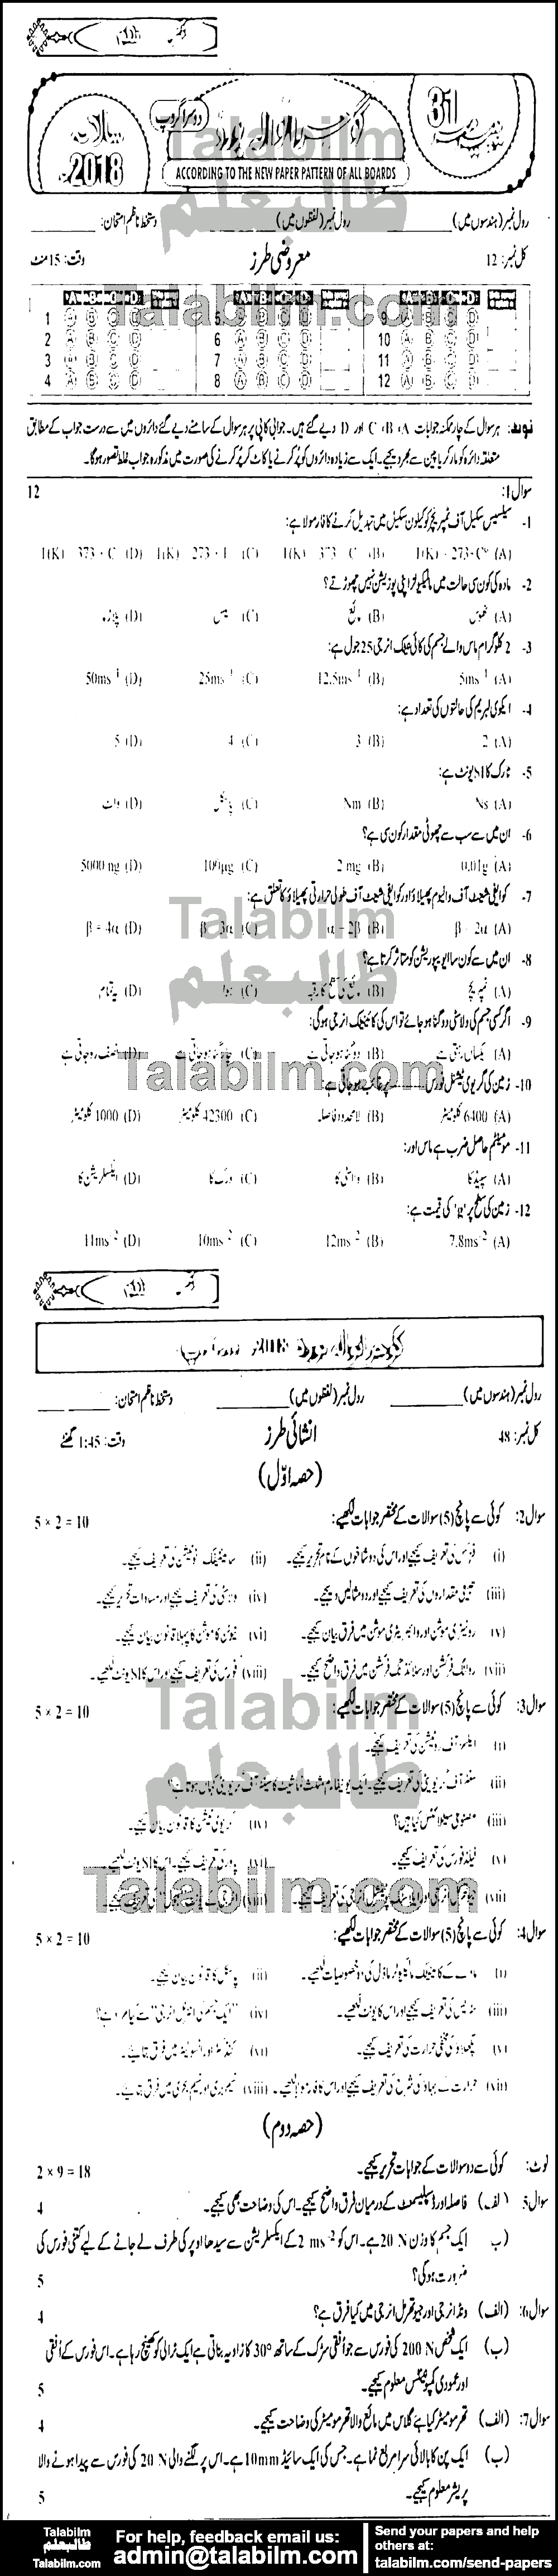 دوسرا گروپ
31
2018
ACCORDING TO THE NEW PAPER PATTERN OF ALL BOARDS
رول نمبر (ہندسوں میں) رول نمبر (لفظوں میں) دستخط ناظم امتحان:
کل نمبر: 12 معروضی طرز وقت: 15 منٹ
A B C D A B C D A B C D
1 5 9
2 6 10
3 7 11
4 8 12
نوٹ: ہر سوال کے چار ممکنہ جوابات A، B، C اور D دیے گئے ہیں۔ جوابی کاپی پر ہر سوال کے سامنے دیے گئے دائروں میں سے درست جواب کے مطابق
متعلقہ دائرہ کو مارکر یا پین سے بھر دیجیے۔ ایک سے زیادہ دائروں کو پُر کرنے یا کاٹ کر پُر کرنے کی صورت میں مذکورہ جواب غلط تصور ہوگا۔
سوال 1: 12
1- سیلسیس سکیل آف ٹمپریچر کو کیلون سکیل میں تبدیل کرنے کا فارمولا ہے:
(A) (B) (C) (D)
2- مادہ کی کون سی حالت میں مالیکیولز اپنی پوزیشن نہیں چھوڑتے؟
(A) ٹھوس (B) مائع (C) گیس (D) پلازمہ
3- 2 کلوگرام ماس والے جسم کی کائی نیٹک انرجی 25 جول ہے:
(A) 5ms⁻¹ (B) 12.5ms⁻¹ (C) 25ms⁻¹ (D) 50ms⁻¹
4- ایکوی لبریم کی حالتوں کی تعداد ہے:
(A) 2 (B) 3 (C) 4 (D) 5
5- ٹارک کا SI یونٹ ہے:
(A) Ns (B) Nm (C) پاسکل (D) واٹ
6- ان میں سے سب سے چھوٹی مقدار کون سی ہے؟
(A) 0.01g (B) 2 mg (C) 100µg (D) 5000 ng
7- کوایفی شینٹ آف والیوم پھیلاؤ اور کوایفی شینٹ آف طولی حرارتی پھیلاؤ کا تعلق ہے:
(A) β = 2α (B) α = 2β (C) β = 3α (D) β = 4α
8- ان میں سے کون سا ایویپوریشن کو متاثر کرتا ہے؟
(A) ٹمپریچر (B) مائع کی سطح کا رقبہ (C) ہوا (D) یہ تمام
9- اگر کسی جسم کی ولاسٹی دوگنا ہو جائے تو اس کی کائنیٹک انرجی ہوگی:
(A) یکساں رہتی ہے (B) دوگنا ہو جاتی ہے (C) چار گنا ہو جاتی ہے (D) نصف رہ جاتی ہے
10- زمین کی گریوی ٹیشنل فورس ---------- پر غائب ہو جاتی ہے:
(A) 6400 کلومیٹر (B) لامحدود فاصلہ (C) 42300 کلومیٹر (D) 1000 کلومیٹر
11- مومینٹم حاصل ضرب ہے ماس اور:
(A) سپیڈ کا (B) ولاسٹی کا (C) ورک کا (D) ایکسلریشن کا
12- زمین کی سطح پر 'g' کی قیمت ہے:
(A) 7.8ms⁻² (B) 12ms⁻² (C) 10ms⁻² (D) 11ms⁻²
رول نمبر (ہندسوں میں) رول نمبر (لفظوں میں) دستخط ناظم امتحان:
کل نمبر: 48 انشائی طرز وقت: 1:45 گھنٹے
(حصہ اوّل)
سوال 2: کوئی سے پانچ (5) سوالات کے مختصر جوابات لکھیے: 5 × 2 = 10
(i) فزکس کی تعریف کیجیے اور اس کی دو شاخوں کے نام تحریر کیجیے۔ (ii) سائنٹیفک نوٹیشن کی تعریف کیجیے۔
(iii) بنیادی مقداروں کی تعریف کیجیے اور دو مثالیں دیجیے۔ (iv) ولاسٹی کی تعریف کیجیے اور مساوات تحریر کیجیے۔
(v) روٹیٹری موشن اور وائبریٹری موشن میں فرق بیان کیجیے۔ (vi) نیوٹن کا موشن کا پہلا قانون بیان کیجیے۔
(vii) رولنگ فرکشن اور سلائڈنگ فرکشن میں فرق واضح کیجیے۔ (viii) فورس کی تعریف کیجیے اور اس کا SI یونٹ لکھیے۔
سوال 3: کوئی سے پانچ (5) سوالات کے مختصر جوابات لکھیے: 5 × 2 = 10
(i) ایکسز آف روٹیشن کی تعریف کیجیے۔
(ii) سنٹر آف گریویٹی کی تعریف کیجیے۔ ایک یونیفارم مثلث نما شیٹ کا سینٹر آف گریویٹی کہاں ہوتا ہے؟
(iii) مصنوعی سیٹلائٹس کیا ہیں؟ (iv) گریوی ٹیشن کا قانون بیان کیجیے۔
(v) فیلڈ فورس کی تعریف کیجیے۔ (vi) پاور کی تعریف کیجیے۔ اس کا SI یونٹ لکھیے۔
(vii) انرجی کی تعریف کیجیے۔ (viii)
سوال 4: کوئی سے پانچ (5) سوالات کے مختصر جوابات لکھیے: 5 × 2 = 10
(i) مادے کے کائنیٹک مالیکیولر ماڈل کی دو خصوصیات لکھیے۔ (ii) پاسکل کا قانون بیان کیجیے۔
(iii) سٹریس کی تعریف کیجیے اور اس کا یونٹ لکھیے۔ (iv) "ایک جسم کی انٹرنل انرجی" سے کیا مراد ہے؟
(v) پگھلاؤ کی مخفی حرارت کی تعریف کیجیے۔ (vi) کنڈکٹرز اور انسولیٹرز میں فرق بتائیے۔
(vii) حرارت کے بہاؤ کی شرح کی تعریف کیجیے اور اس کا فارمولا لکھیے۔ (viii) نسیم بری اور نسیم بحری میں فرق بتائیے۔
(حصہ دوم)
نوٹ: کوئی سے دو سوالات کے جوابات تحریر کیجیے۔ 2 × 9 = 18
سوال 5: (الف) فاصلہ اور ڈسپلیسمنٹ کے درمیان فرق واضح کیجیے۔ اس کی وضاحت بھی کیجیے۔ 4
(ب) ایک جسم کا وزن 20 N ہے۔ اس کو 2 ms⁻² کے ایکسلریشن سے سیدھا اوپر کی طرف لے جانے کے لیے کتنی فورس کی
ضرورت ہوگی؟ 5
سوال 6: (الف) ونڈ انرجی اور جیوتھرمل انرجی میں کیا فرق ہے؟ 4
(ب) ایک شخص 200 N کی فورس سے جو افقی سڑک کے ساتھ 30° کا زاویہ بناتی ہے ایک ٹرالی کو کھینچ رہا ہے۔ اس فورس کے افقی
اور عمودی کمپونینٹس معلوم کیجیے۔ 5
سوال 7: (الف) تھرمومیٹر کیا ہے؟ گلاس میں مائع والا تھرمومیٹر کی وضاحت کیجیے۔ 4
(ب) ایک پن کا بالائی سرا مربع نما ہے۔ جس کی ایک سائیڈ 10mm ہے۔ اس پر لگنے والی 20 N کی فورس سے پیدا ہونے والا
پریشر معلوم کیجیے۔ 5
Talabilm
طالبعلم
Talabilm.com
For help, feedback email us:
admin@talabilm.com
Send your papers and help others at:
talabilm.com/send-papers